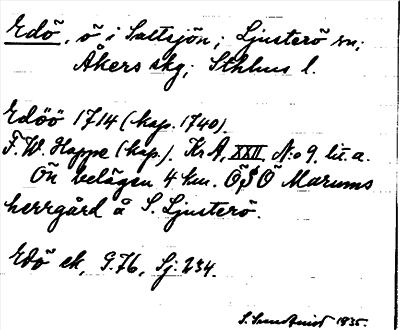 Edö, ö i Saltsjön; Ljusterö sn;
Åkers skg; Sthlms l.
Edöö 1714 (kop. 1740).
F. W. Hoppe (kop.). KrA, XXII, N:o 9, lit. a.
Ön belägen 4 km. ÖSÖ Marums
herrgård å S. Ljusterö.
Edö ek, G.76, Sj. 234.
S. Sundqvist 1935.